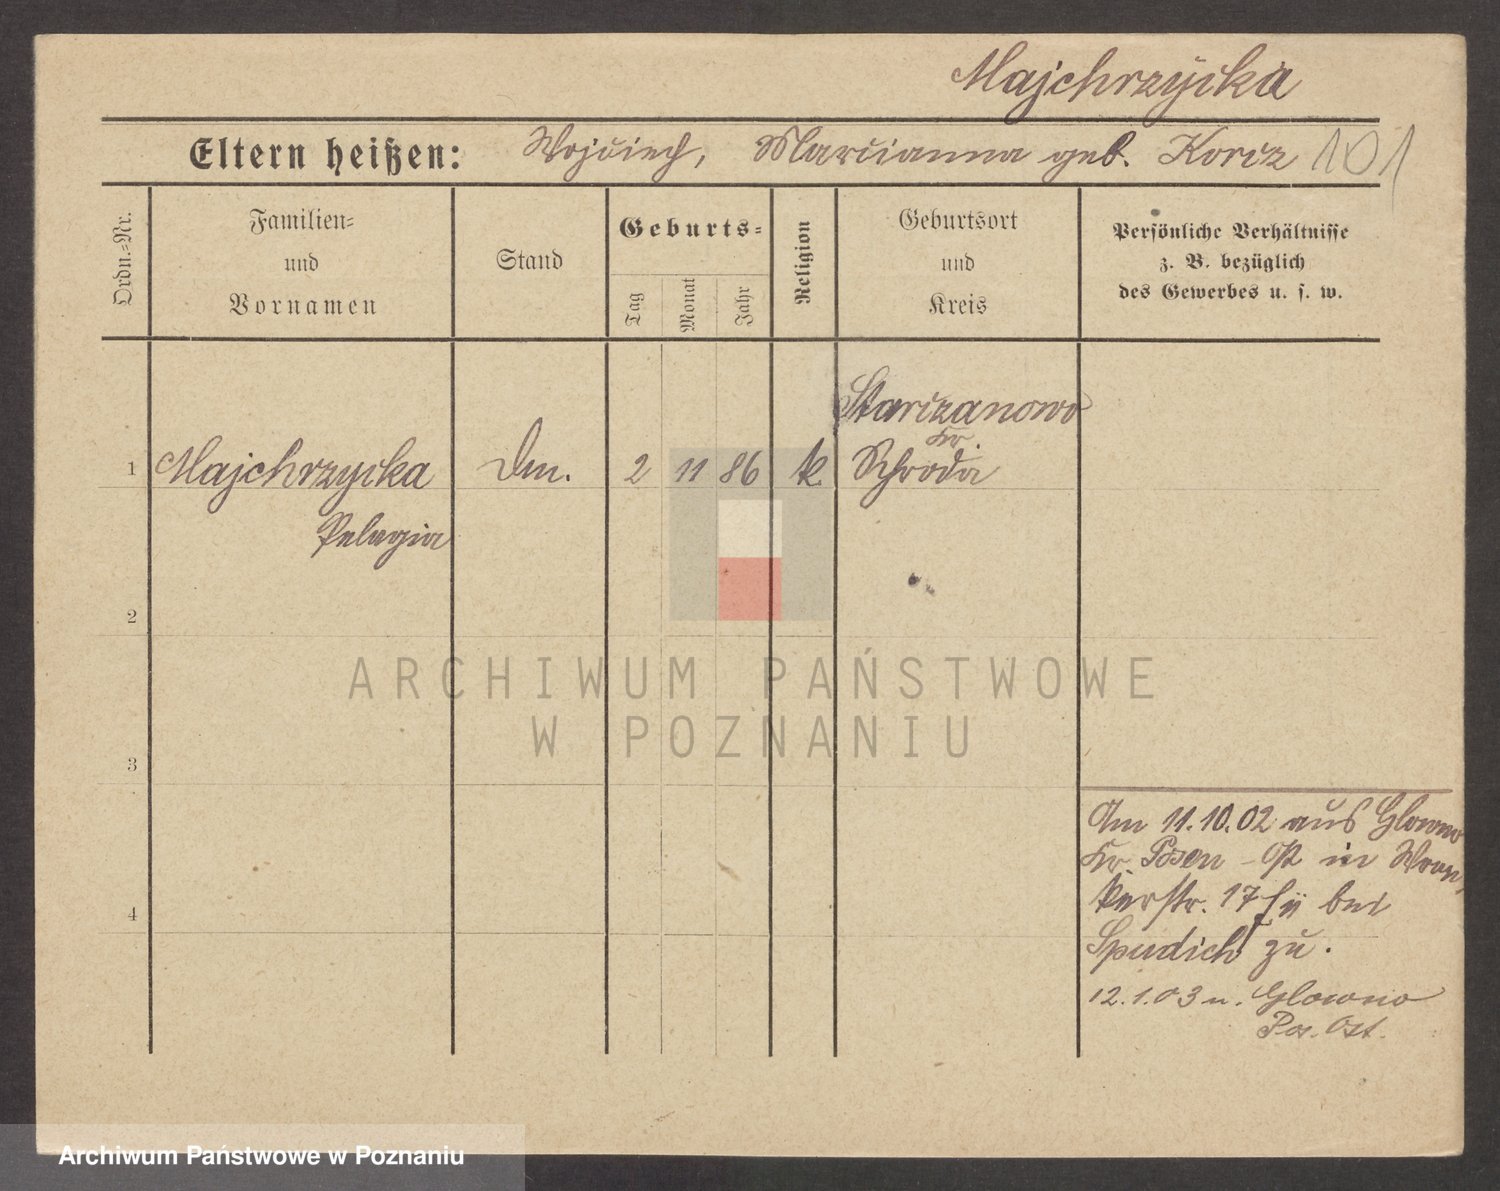 Majchrzycka
Eltern heißen: Wojciech, Marcianna geb. Korcz 101
Ordn.-Nr.
Familien-
und
Vornamen
Stand
Geburts-
Tag
Monat
Jahr
Religion
Geburtsort
und
Kreis
Persönliche Verhältnisse
z. B. bezüglich
des Gewerbes u. s. w.
Starczanowo
Kr.
1 Majchrzycka Dm. 2 11 86 k. Schroda
Pelagia
2
3
4
Am 11.10.02 aus Glowno
Kr. Posen-Ost in Wron-
kerstr. 17 bei
Spudich zu.
12.1.03 n. Glowno
Pos. Ost.
ARCHIWUM PAŃSTWOWE
W POZNANIU
Archiwum Państwowe w Poznaniu